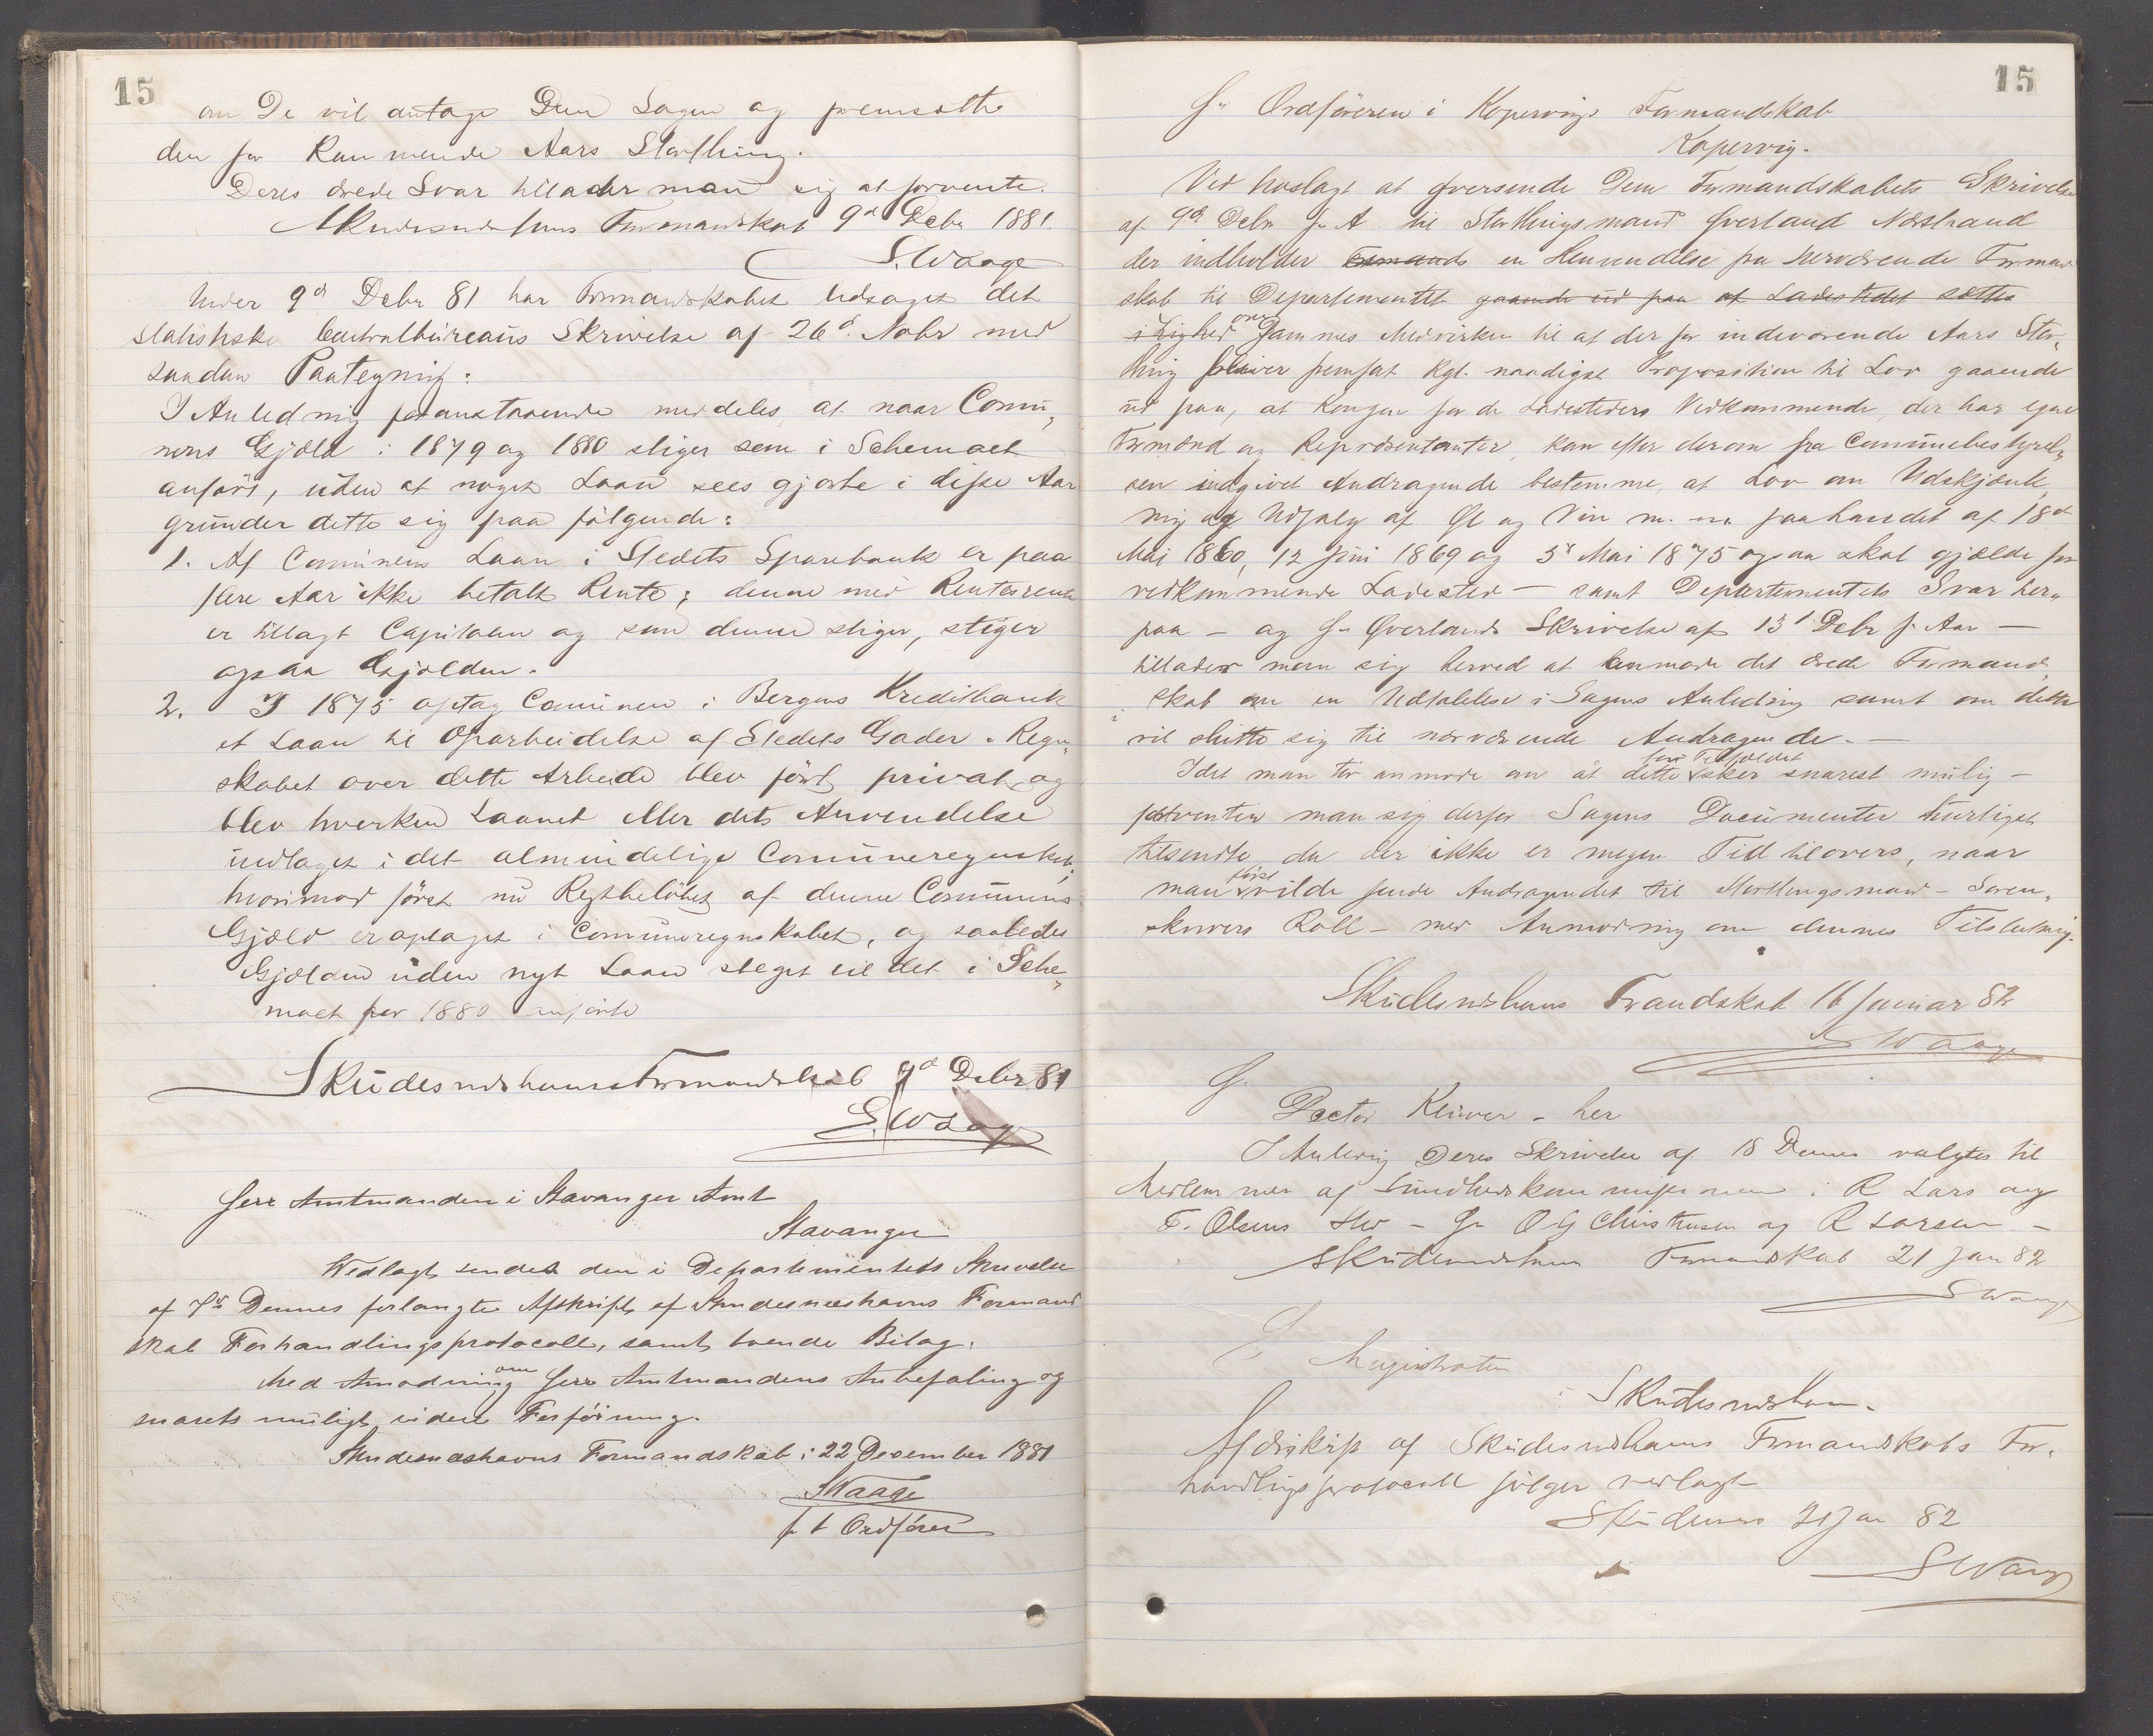 15
om De vil antage Dem Sagen og fremsætte
den for Kommende Aars Storthing.
Deres ærede Svar tillader man sig at forvente.
Skudesneshavns Formandskab 9d Debr 1881.
S. Waage
Under 9d Debr 81 har Formandskabet tilsaget det
statistiske Centralbüreaus Skrivelse af 26d Nobr med
saadan Paategning:
I Anledning foranstaaende meddeles, at naar Comü„
nens Gjæld i 1879 og 1880 stiger som i Schemaet
anført, üden at noget Laan sees gjorte i disse Aar
grunder dette sig paa følgende:
1. Af Comünens Laan i Stedets Sparebank er paa
flere Aar ikke betalt Rente; denne med Rentesrente
er tillagt Capitalen og som denne stiger, stiger
ogsaa Gjælden.
2. I 1875 optog Comünen i Bergens Kreditbank
et Laan til Oparbeidelse af Stedets Gader. Regn„
skabet over dette Arbeide blev ført privat og
blev hverken Laanet eller dets Anvendelse
indtaget i det almindelige Comüneregnskab;
hvorimod først nü Restbeløbet af denne Comünens
Gjæld er optaget i Comüneregnskabet, og saaledes
Gjælden üden nyt Laan steget til det i Sche„
maet for 1880 anførte
Skudesneshavns Formandskab 9d Debr 81
S. Waage
Herr Amtmanden i Stavanger Amt
Stavanger
Vedlagt sendes den i Departementets Skrivelse
af 7de Dennes forlangte Afskrift af Skudesneshavns Formand
skab Forhandlingsprotocoll, samt tvende Bilag.
Med Anmodning om Herr Amtmandens Anbefaling og
snarets muligt videre Forføining.
Skudesneshavns Formandskab i 22 Desember 1881
SWaage
f t Ordfører
15
Hr Ordføreren i Kopervigs Formandskab
Kopervig.
Ved hoslagt at oversende Dem Formandskabets Skrivelse
af 9d Debr f. A. til Storthingsmand Øverland Nærstrand
der indholder Formands en Henvendelse fra nærværende Formand
skab til Departementet gaaende ud paa at Ladestedet sættes
i Lighed om Sammes Medvirken til at der for indeværende Aars Stor„
thing bliver fremsat Kgl. naadigst Proposition til Lov gaaende
üd paa, at Kongen for de Ladesteders Vedkommende, der har egne
Formænd og Repræsentanter, kan efter derom fra Comünebestyrel„
sen indgivet Andragende bestemme, at Lov om Udskjænk„
ning og Udsalg af Øl og Vin m. m. paahandlet af 18d
Mai 1860, 12 Juni 1869 og 3d Mai 1875 ogsaa skal gjælde for
vedkommende Ladested – samt Departementets Svar her„
paa – og Hr Øverlands Skrivelse af 13d Debr f. Aar –
tillader man sig herved at anmode det ærede Formand„
skab om en Udtalelse i Sagens Anledning samt om dette
vil slutte sig til nærværende Andragende. –
Idet man tør anmode om at dette i fire Tilfældet sker snarest mulig –
forventer man sig derfor Sagens Documenter hurtigst
tilsendte, da der ikke er megen Tid tilovers, naar
man først vilde sende Andragendet til Storthingsmand – Soren„
skriver Roll – med Anmodning om dennes Tilslutning.
Skudesneshavns Formandskab 16 Januar 82
S Waage
Hr
Doctor Kliwer – her
I Anledning Deres Skrivelse af 18 Dennes valgtes til
Medlemmer af Sundhedskommissionen i R Lars og
T. Olsens Sted – Hr O G Christensen og R Larsen –
Skudesneshavns Formandskab 21 Jan 82
S Waage
Magistraten
i Skudesneshavn.
Afskrift af Skudesneshavns Formandskabs For„
handlingsprotocoll følger vedlagt
Skudesnes 21 Jan 82
S Waage